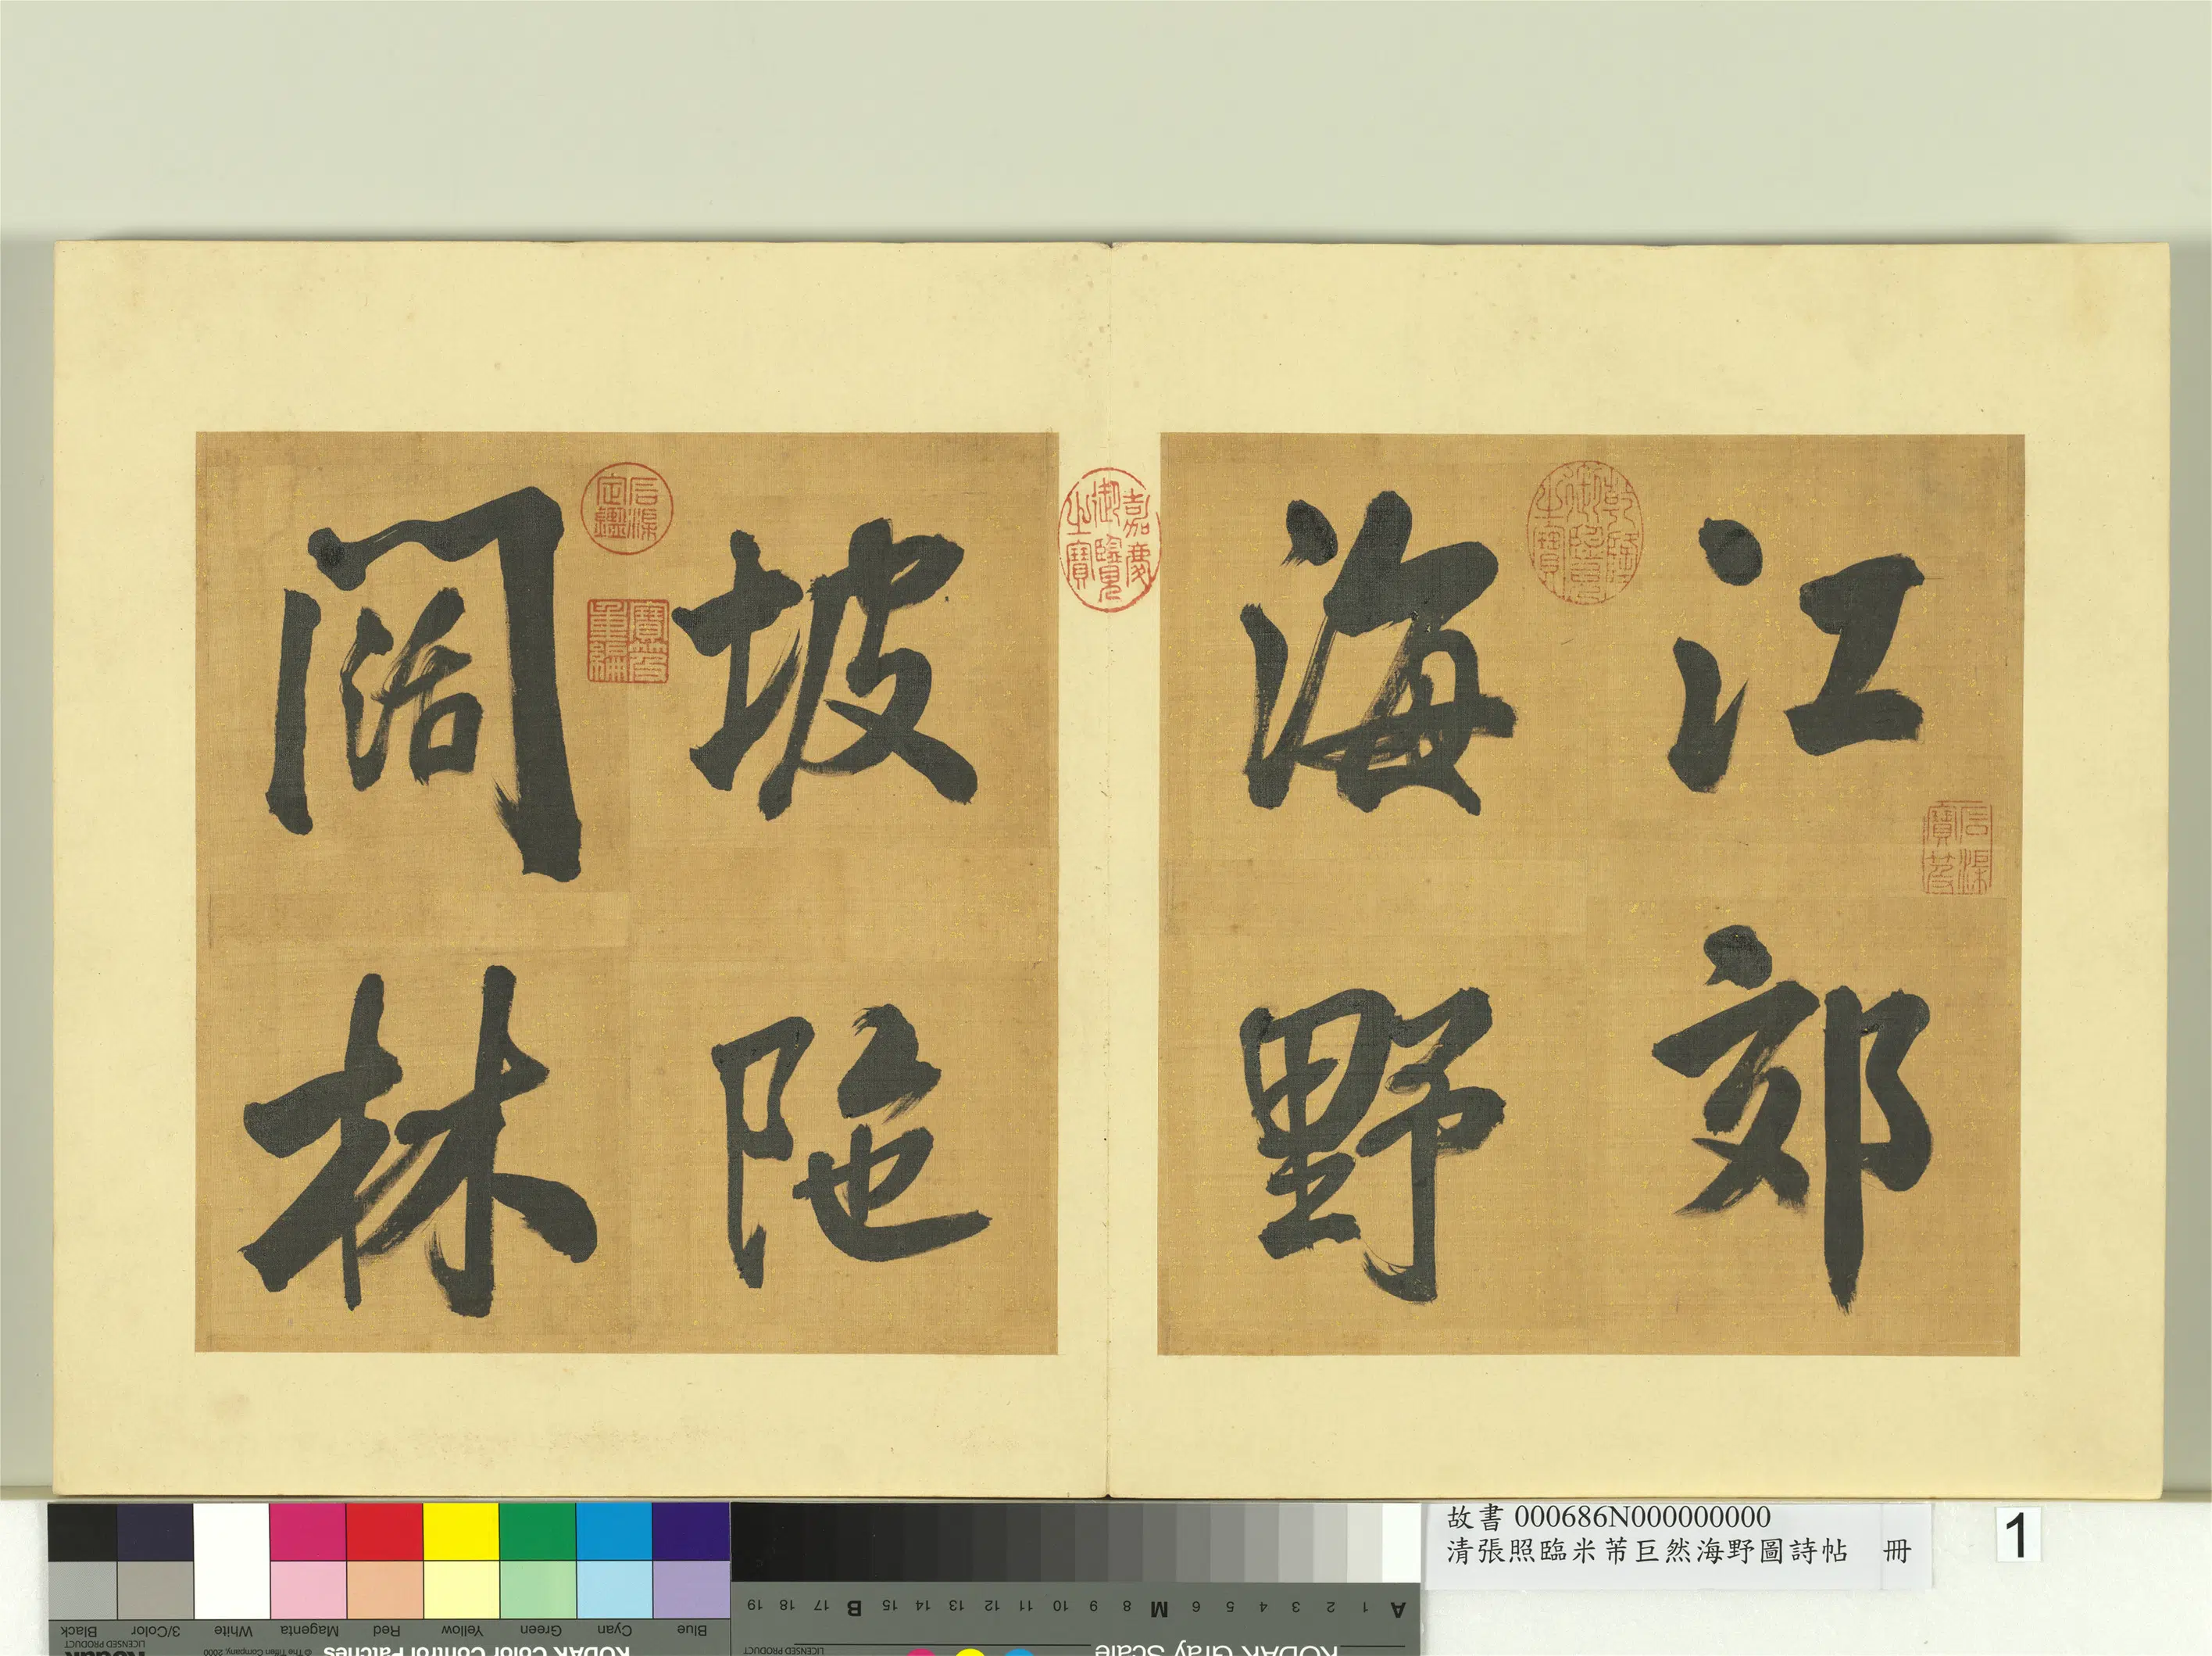 江郊
海野
坡陁
闊林
乾隆御覽之寶
石渠寶笈
嘉慶御覽之寶
石渠定鑑
寶笈重編
故書 000686N000000000
清張照臨米芾巨然海野圖詩帖 冊
1
Black 3/Color White Magenta Red Yellow Green Cyan Blue
KODAK Color Control Patches
Kodak
LICENSED PRODUCT
© The Tiffen Company, 2000
A 1 2 3 4 5 6 M 8 9 10 11 12 13 14 15 B 17 18 19
KODAK Gray Scale
LICENSED PRODUCT